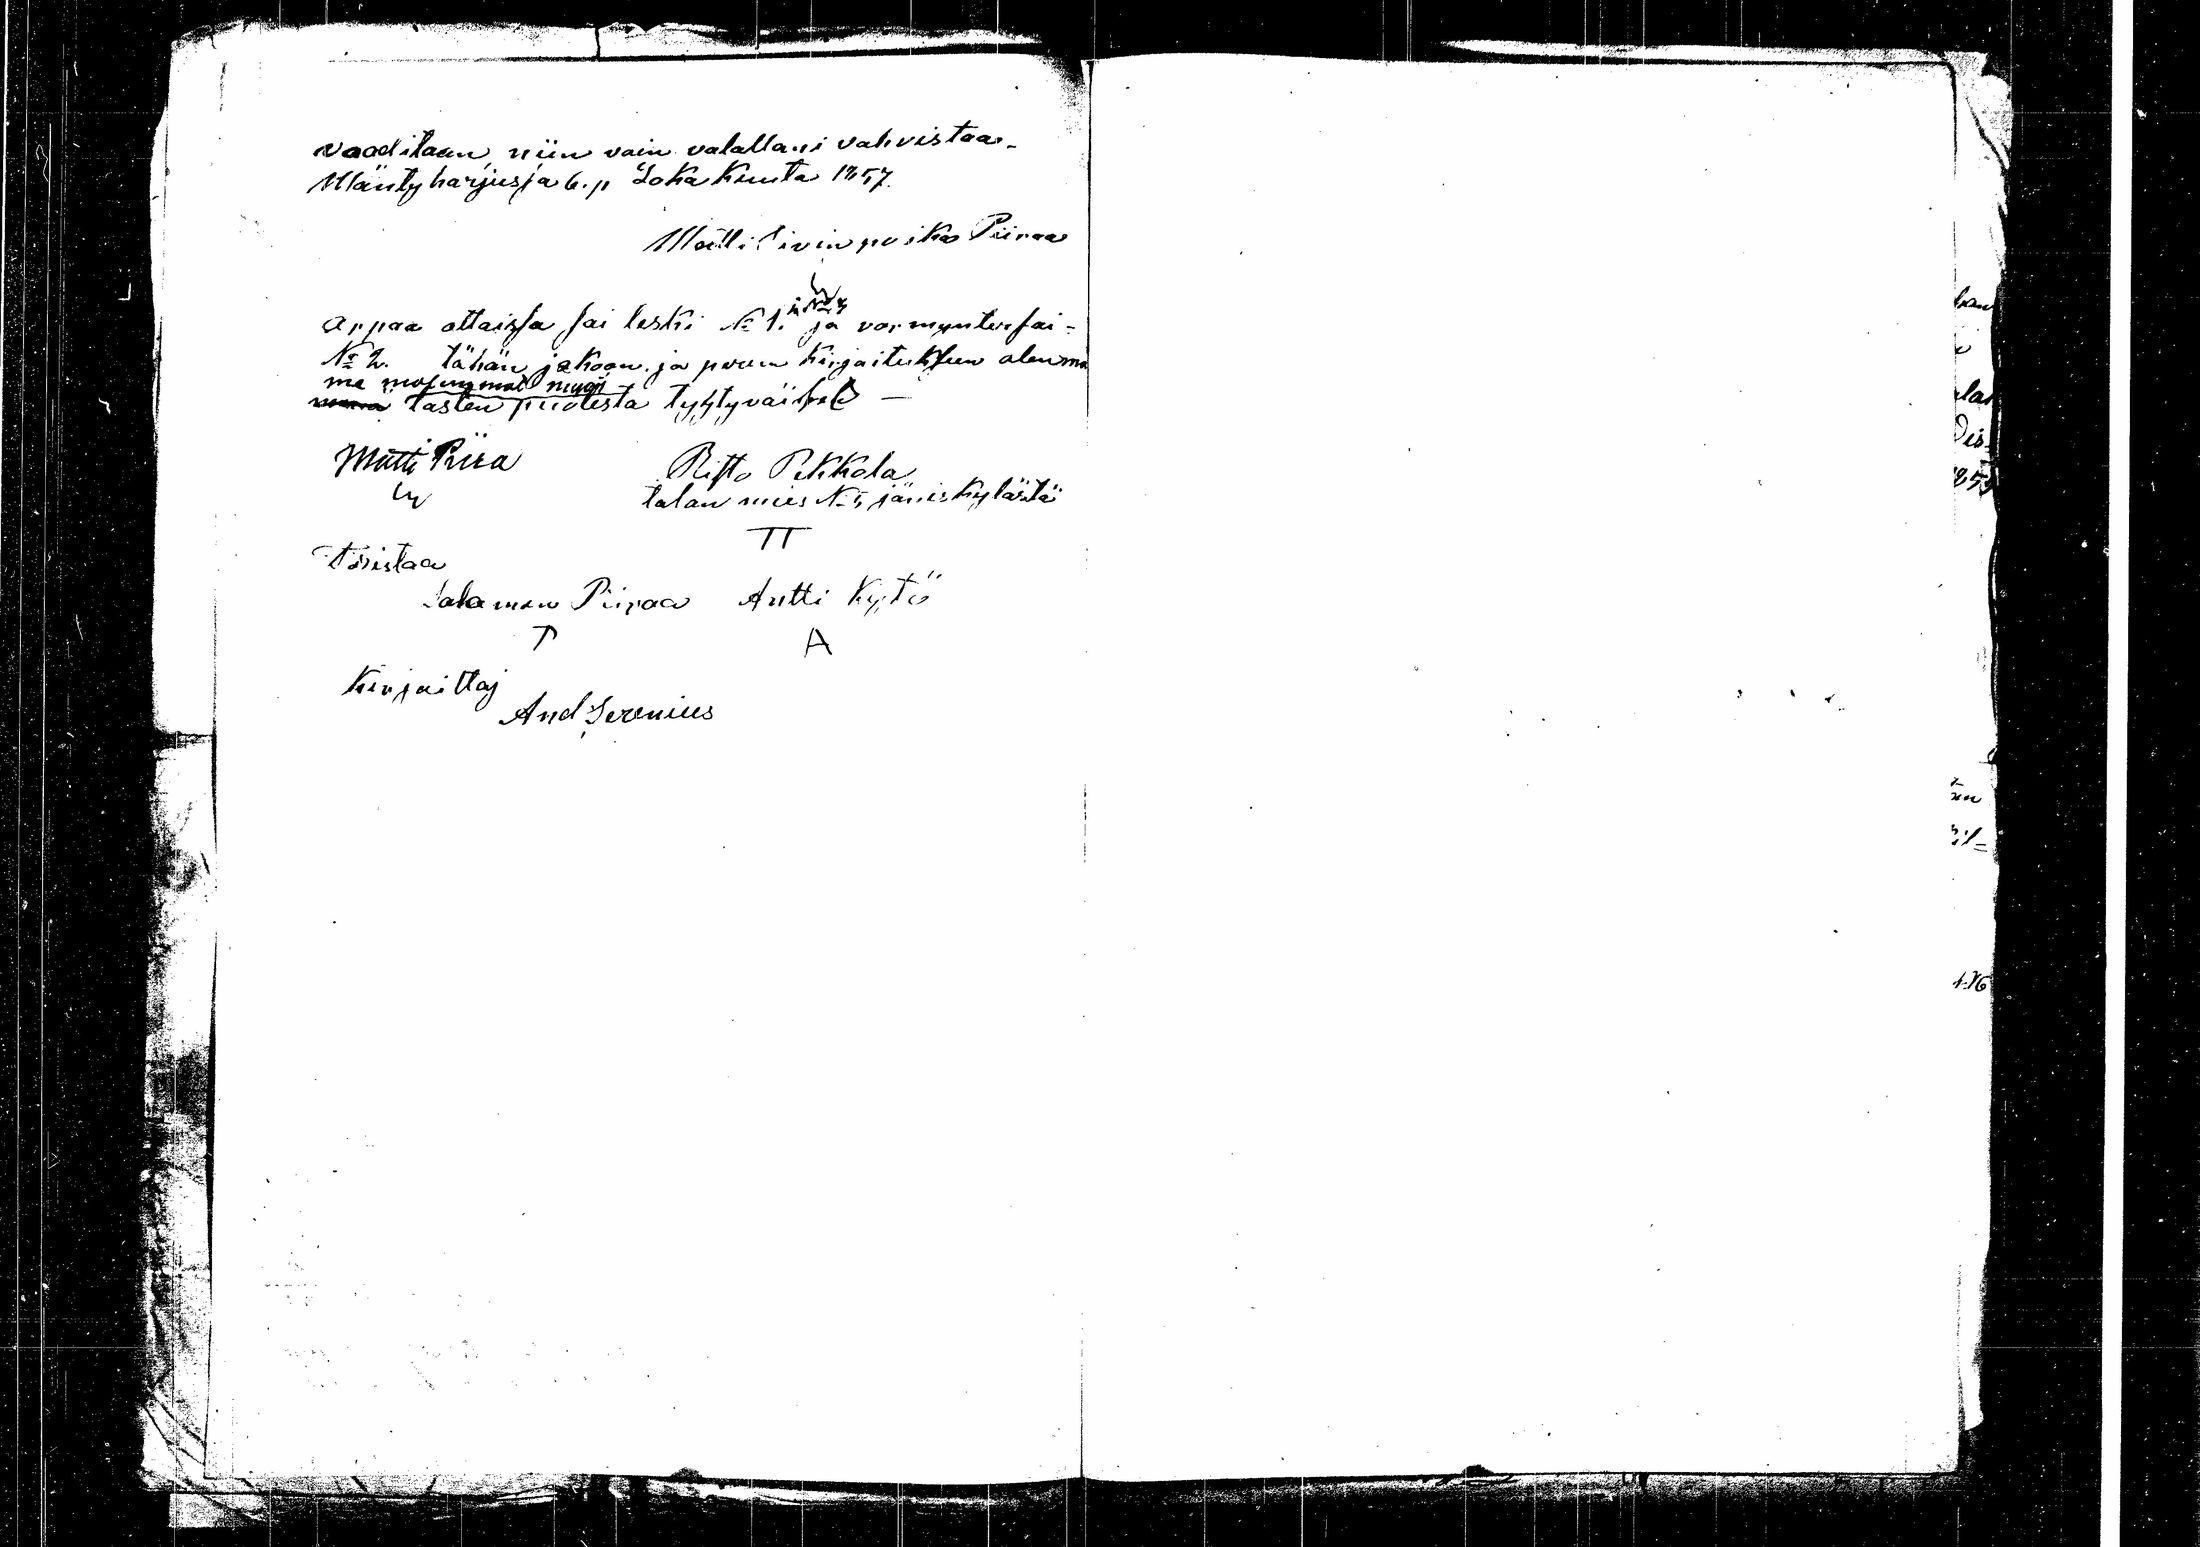 vaaditaan, niin vain valallani vahvistaa.
Mäntyharjusja 6. p Lokakuuta 1857.
Matti Sivinpoika Piiraa
i No 3
arpaa ottaissa sai leski No 1. ja vormynter sai=
No 2. tähän jakoon ja perun kirjaituksen olemma
me molemmat muoji
lasten puolesta tyytyväiset —
Matti Piira
Risto Pekkola
talan mies No 5 jäniskylästä
TT
toistaa
Salamon Piiraa Antti Kytö
A
Kirjaittaj
And Serenius